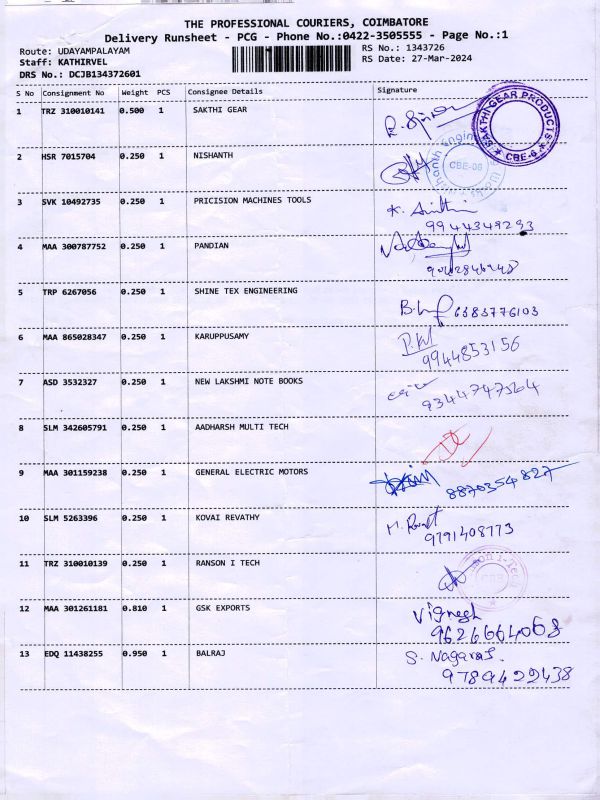 THE PROFESSIONAL COURIERS, COIMBATORE
Delivery Runsheet - PCG - Phone No.:0422-3505555 - Page No.:1
Route: UDAYAMPALAYAM RS No.: 1343726
Staff: KATHIRVEL RS Date: 27-Mar-2024
DRS No.: DCJB134372601
S No Consignment No Weight PCS Consignee Details Signature
1 TRZ 310010141 0.500 1 SAKTHI GEAR
SAKTHI GEAR PRODUCTS CBE-6
2 HSR 7015704 0.250 1 NISHANTH
CBE-06
3 SVK 10492735 0.250 1 PRICISION MACHINES TOOLS
9944349293
4 MAA 300787752 0.250 1 PANDIAN
5 TRP 6267056 0.250 1 SHINE TEX ENGINEERING
6383776103
6 MAA 865028347 0.250 1 KARUPPUSAMY
9944853156
7 ASD 3532327 0.250 1 NEW LAKSHMI NOTE BOOKS
9344747564
8 SLM 342605791 0.250 1 AADHARSH MULTI TECH
9 MAA 301159238 0.250 1 GENERAL ELECTRIC MOTORS
8870354827
10 SLM 5263396 0.250 1 KOVAI REVATHY
9791408773
11 TRZ 310010139 0.250 1 RANSON I TECH
12 MAA 301261181 0.810 1 GSK EXPORTS
Vignesh
9626664068
13 EDQ 11438255 0.950 1 BALRAJ
S. Nagaraj.
9789422438